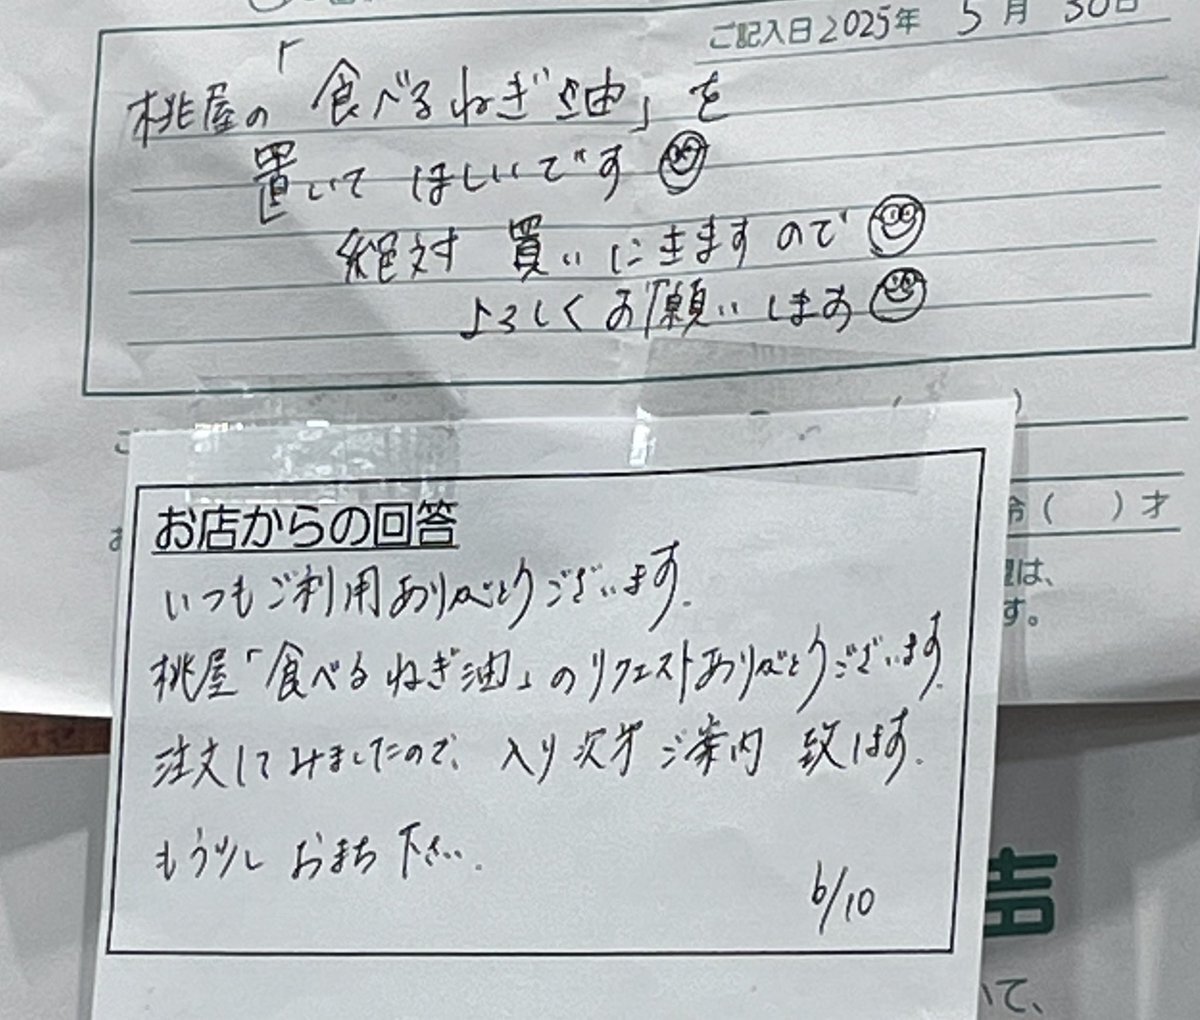 ご記入日 2025年 5月 30日
桃屋の「食べるねぎ油」を
置いてほしいです
絶対 買いにきますので
よろしくお願いします
お店からの回答
いつもご利用ありがとうございます.
桃屋「食べるねぎ油」のリクエストありがとうございます.
注文してみましたので、入り次第ご案内 致します.
もう少し おまち下さい.
6/10
( )才
は、
す。
いて、